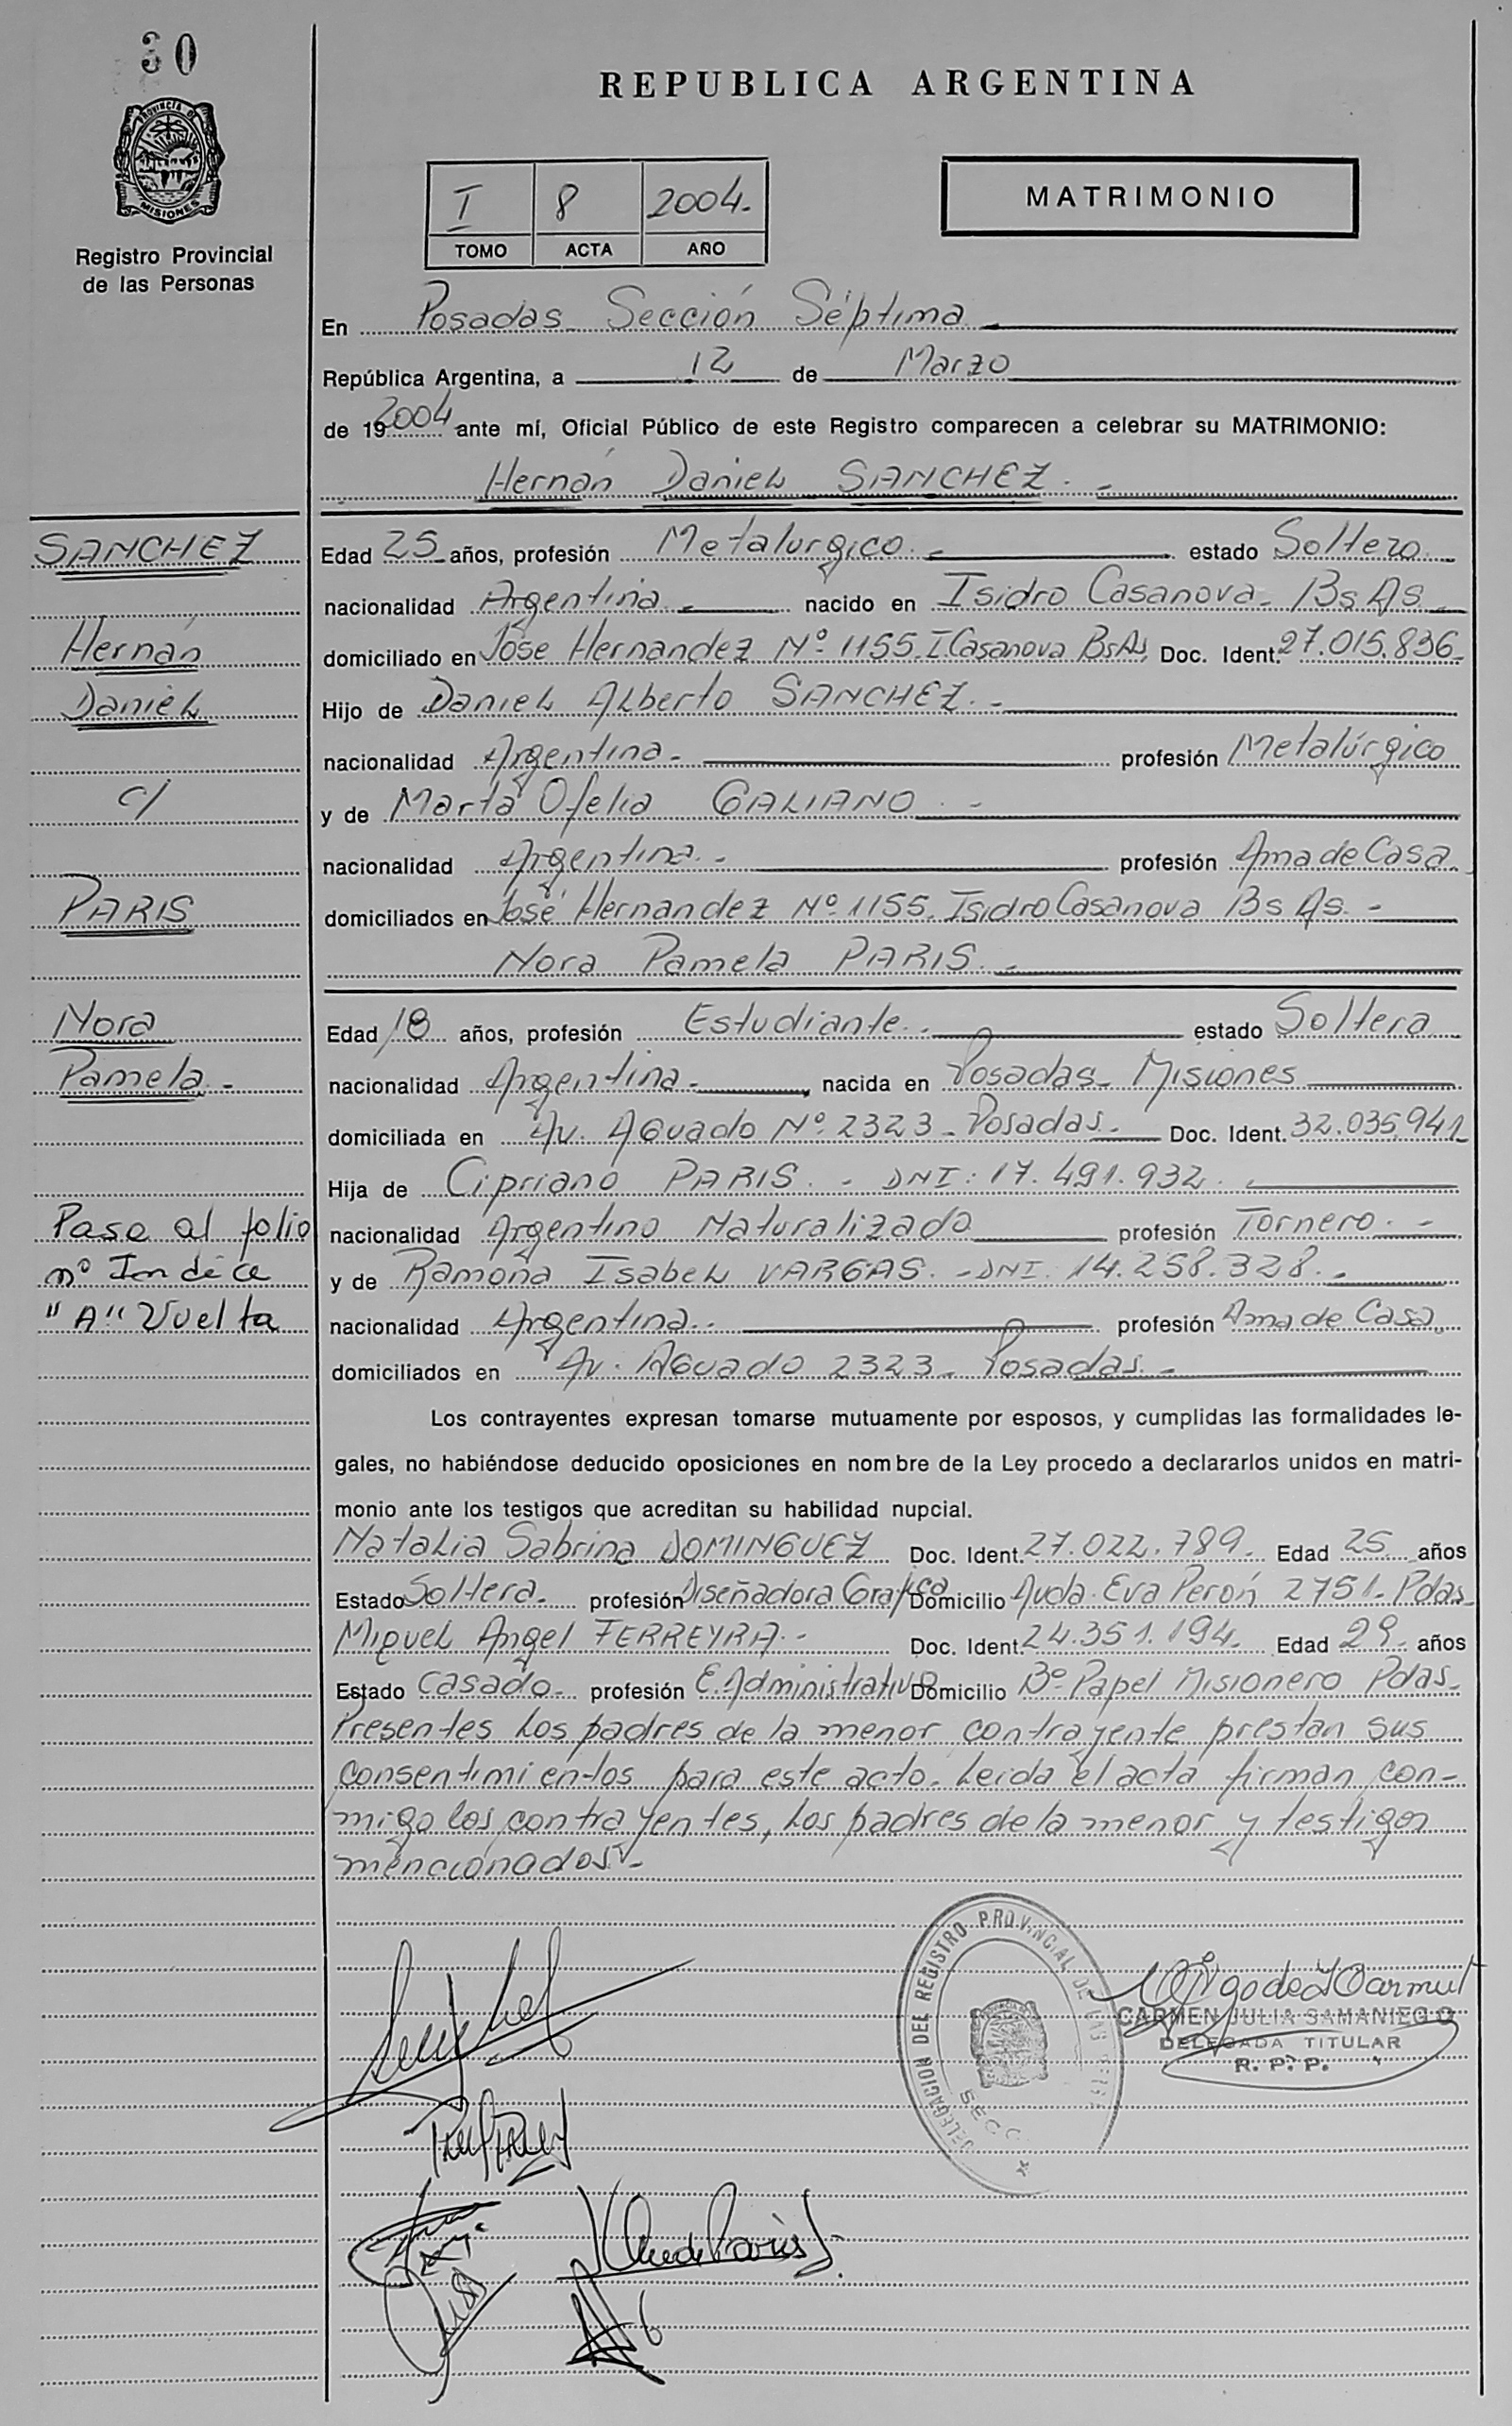 30
PROVINCIA DE
MISIONES
Registro Provincial
de las Personas
REPUBLICA ARGENTINA
I 8 2004.-
TOMO ACTA AÑO
MATRIMONIO
En Posadas Sección Séptima
República Argentina, a 12 de Marzo
de 192004 ante mí, Oficial Público de este Registro comparecen a celebrar su MATRIMONIO:
Hernán Daniel SANCHEZ.-
SANCHEZ
Hernán
Daniel
c/
PARIS
Nora
Pamela.-
Pase al folio
nº Indice
"A" Vuelta
Edad 25 años, profesión Metalurgico.- estado Soltero
nacionalidad Argentina.- nacido en Isidro Casanova- Bs As.-
domiciliado en José Hernandez Nº 1155.I.Casanova BsAs Doc. Ident. 27.015.836.-
Hijo de Daniel Alberto SANCHEZ.-
nacionalidad Argentina.- profesión Metalúrgico
y de Marta Ofelia GALIANO.-
nacionalidad Argentina.- profesión Ama de Casa.
domiciliados en José Hernandez Nº 1155. Isidro Casanova Bs As.-
Nora Pamela PARIS.-
Edad 18 años, profesión Estudiante.- estado Soltera
nacionalidad Argentina.- nacida en Posadas- Misiones
domiciliada en Av. Aguado Nº 2323- Posadas.- Doc. Ident. 32.035.941
Hija de Cipriano PARIS.- DNI: 17.491.932.
nacionalidad Argentino Naturalizado profesión Tornero.-
y de Ramona Isabel VARGAS.-DNI. 14.258.328.-
nacionalidad Argentina.- profesión Ama de Casa.
domiciliados en Av. Aguado 2323- Posadas.-
Los contrayentes expresan tomarse mutuamente por esposos, y cumplidas las formalidades le-
gales, no habiéndose deducido oposiciones en nombre de la Ley procedo a declararlos unidos en matri-
monio ante los testigos que acreditan su habilidad nupcial.
Natalia Sabrina DOMINGUEZ Doc. Ident. 27.022.789.- Edad 25 años
Estado Soltera.- profesión Diseñadora Grafica Domicilio Avda. Eva Perón 2751- Pdas-
Miguel Angel FERREYRA.- Doc. Ident. 24.351.194.- Edad 29.- años
Estado Casado.- profesión E.Administrativo Domicilio Bº Papel Misionero Pdas-
Presentes los padres de la menor contrayente prestan sus
consentimientos para este acto. Leida el acta firman con-
migo los contrayentes, los padres de la menor y testigos
mencionados.-
DELEGACION DEL REGISTRO PROVINCIAL DE LAS
SECC
CARMEN JULIA SAMANIEGO
DELEGADA TITULAR
R. P. P.